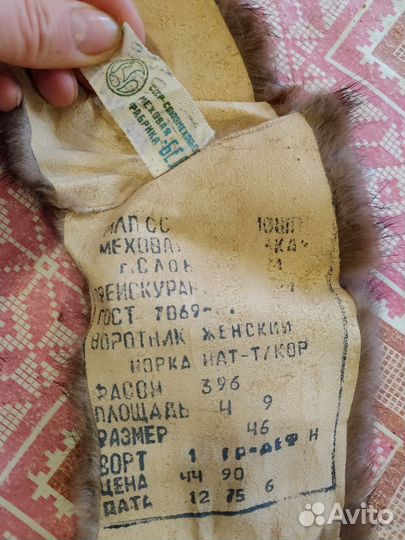 СССР-СОЮЗМЕХОВ
МЕХОВАЯ
ФАБРИКА "БЕ
МЛП СС
МЕХОВА КА"
Г.СЛОБ
ПРЕЙСКУРАН
ГОСТ 7069-
ВОРОТНИК ЖЕНСКИЙ
НОРКА НАТ-Т/КОР
ФАСОН 396
ПЛОЩАДЬ 4 9
РАЗМЕР 46
СОРТ 1 ГР-ДЕФ Н
ЦЕНА 44 90
ДАТА 12 75 6
Avito